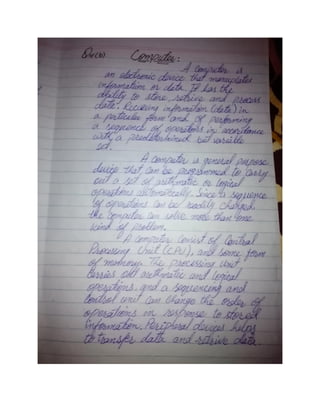 Computer:
A computer is
an electronic device that manipulates
information or data. It has the
ability to store, retrive and process
data. Receiving information (data) in
a particular form and of performing
a sequence of operations in accordance
with a predetermined but variable
set.
A computer is general purpose
device that can be programmed to carry
out a set of arithmetic or logical
operations automatically. Since a sequence
of operations can be readily changed,
the computer can solve more than one
kind of problem.
A computer consist of Central
Processing Unit (CPU), and some form
of memory. The processing unit
carries out arithmetic and logical
operations, and a sequencing and
control unit can change the order of
operations in response to stored
information. Peripheral devices helps
to transfer data and retrive data.